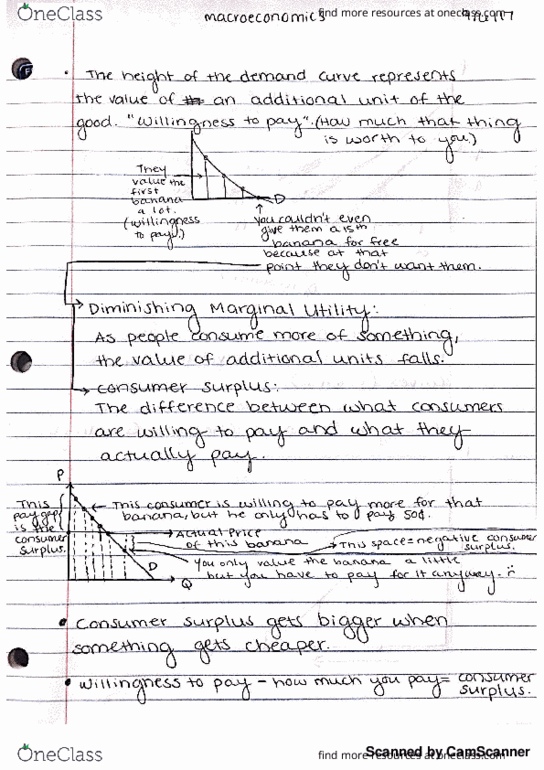 OneClass
macroeconomics
find more resources at oneclass.com
• The height of the demand curve represents
the value of an additional unit of the
good. "Willingness to pay". (How much that thing
is worth to you.)
They
value the
first
banana
a lot.
(willingness
to pay.)
D
you couldn't even
give them a 15th
banana for free
because at that
point they don't want them.
→ Diminishing Marginal Utility:
As people consume more of something,
the value of additional units falls.
→ consumer surplus:
The difference between what consumers
are willing to pay and what they
actually pay.
P
This
pay gap
is the
consumer
surplus.
This consumer is willing to pay more for that
banana, but he only has to pay 50¢.
Actual Price
of this banana
→ This space = negative consumer
surplus.
You only value the banana a little
but you have to pay for it anyway.
D
Q
• Consumer surplus gets bigger when
something gets cheaper.
• Willingness to pay - how much you pay = consumer
surplus.
OneClass
find more resources at oneclass.com
Scanned by CamScanner